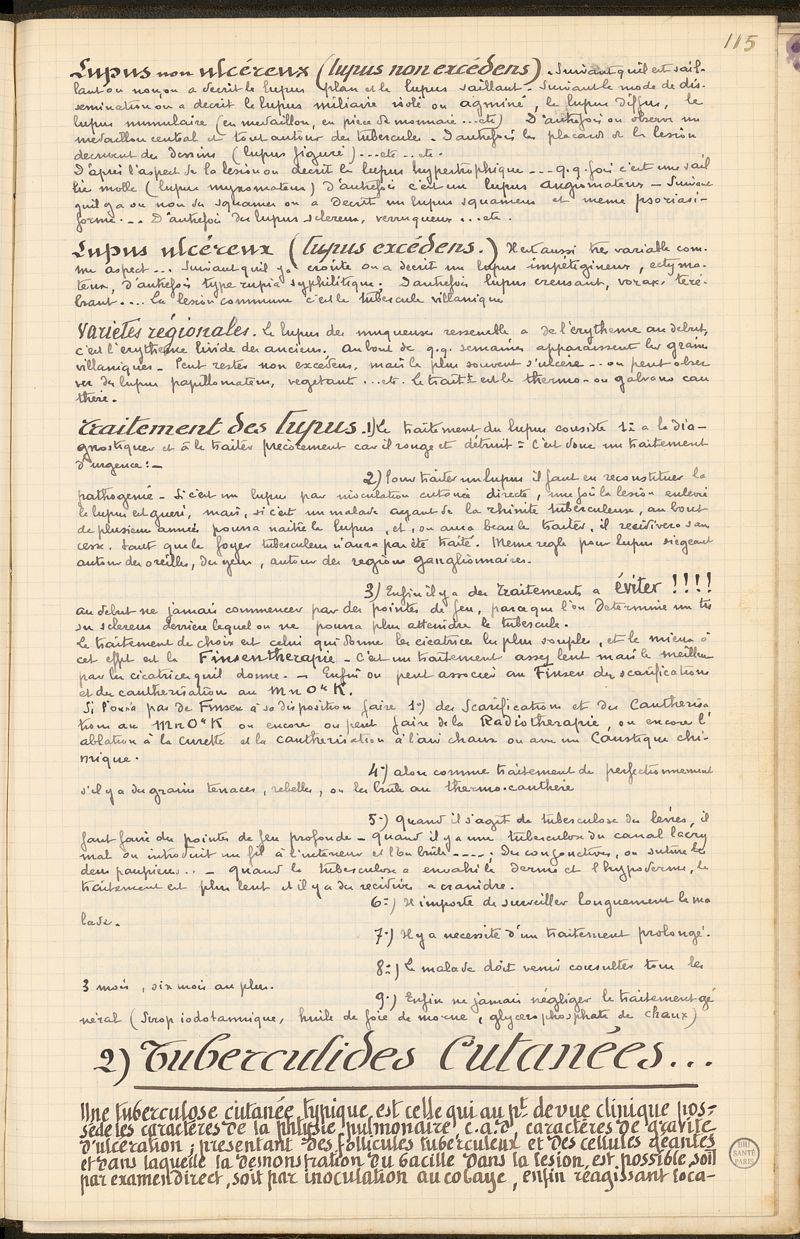 115
Lupus non ulcéreux (lupus non excédens). Suivant qu'il est sail-
lant ou non, on a décrit le lupus plan et le lupus saillant - Suivant le mode de dis-
semination on a decrit le lupus miliaire isolé ou agminé, le lupus diffus, le
lupus nummulaire (en medaillon, en pièce de monnaie ... etc) D'autrefois on observe un
médaillon central et tout autour des tubercule. D'autrefois les placards de la lesion
decrivent des dessins (lupus figuré) ... etc .. etc.
D'après l'aspect de la lesion on décrit le lupus hypertrophique --- q.q. fois c'est une sail
lie molle (lupus myxomateux) D'autrefois c'est un lupus angiomateux - Suivant
qu'il y a ou non des squames on a décrit un lupus squameux et même psoriasi-
forme . - . D'autrefois des lupus sclereux, verruqueux ... etc .
Lupus ulcéreux (lupus excédens.) Il est aussi très variable com-
me aspect ... Suivant qu'il y a croûte on a décrit un lupus impétigineux, ectyma-
teux, d'autrefois type rupia syphilitique. D'autrefois lupus creusant, vorax, téré-
brant .... La lesion commune c'est le tubercule villanique
Varietes régionales. Le lupus des muqueuses ressemble a de l'erytheme au debut,
c'est l'erytheme livide des anciens. Au bout de q.q. semaines apparaissent les grains
villaniques - Peut rester non excedens, mais le plus souvent s'ulcère ... on peut obser
ver des lupus papillomateux, vegetant ... etc. le trait.t est le thermo- ou galvano cau
thère.
Traitement des lupus. 1) Le traitement du lupus consiste 1º a le dia-
gnostiquer et à le traiter précocement car il ronge et detruit = C'est donc un traitement
d'urgence : -
2) Pour traiter un lupus il faut en reconstituer la
pathogenie - Si c'est un lupus par inoculation cutanée directe, une fois la lesion enlevée
le lupus est gueri, mais, si c'est un malade ayant de la rhinite tuberculeuse, au bout
de plusieurs années pourra naitre le lupus, et, on aura beau le traiter, il recidivera sans
cesse. tant que le foyer tuberculeux n'aura pas été traité. Meme regle pour lupus siegeant
autour des oreilles, des yeux, autour des regions ganglionnaires.
3) Enfin il y a des traitements a éviter !!!!
au debut ne jamais commencer par des pointes de feu, parce que l'on determine un tis
su sclereux derriere lequel on ne pourra plus atteindre le tubercule.
Le traitement de choix est celui qui donne les cicatrices les plus souples, et le mieux à
cet effet est la Finsenthérapie - C'est un traitement assez lent mais le meilleur
par les cicatrices qu'il donne. - Enfin on peut associer au Finsen des scarifications
et des cautherisation au MnO⁴K.
Si l'on n'a pas de Finsen à sa disposition faire 1º) des Scarifications et des Cautherisa
tions au MnO⁴K ou encore on peut faire de la Radiotherapie, ou encore l'
ablation à la curette et la cautherisation à l'air chaux ou avec un Caustique chi-
mique.
4º) alors comme traitement de perfectionnement
s'il y a des grains tenaces, rebelles, on les brûle au thermo-cauthère
5º) Quand il s'agit de tuberculose des lèvres, il
faut faire des pointes de feu profonde - Quand il y a une tuberculose du canal lacry
mal on introduit un fil à l'interieur et l'on brûle ----; Des conjonctives, on suture les
deux paupières .. - Quand la tuberculose a envahi le derme et l'hypoderme, le
traitement est plus lent et il y a des recidives a craindre.
6º) Il importe de surveiller longuement le ma
lade.
7º) Il y a necessité d'un traitement prolongé.
8º) Le malade doit venir consulter tous les
3 mois, six mois au plus.
9º) Enfin ne jamais négliger le traitement gé
néral (Sirop iodotannique, huile de foie de morue, glycerophosphate de chaux)
2) Tuberculides Cutanées...
Une tuberculose cutanée typique, est celle qui au pt de vue clinique pos-
sede les caractères de la phtisie pulmonaire, c.a.d, caractères de gravité
d'ulceration ; presentant des follicules tuberculeux et des cellules géantes
et dans laquelle la demonstration du bacille dans la lesion, est possible, soit
par examen direct, soit par inoculation au cobaye, enfin reagissant loca-
BIU
SANTÉ
PARIS